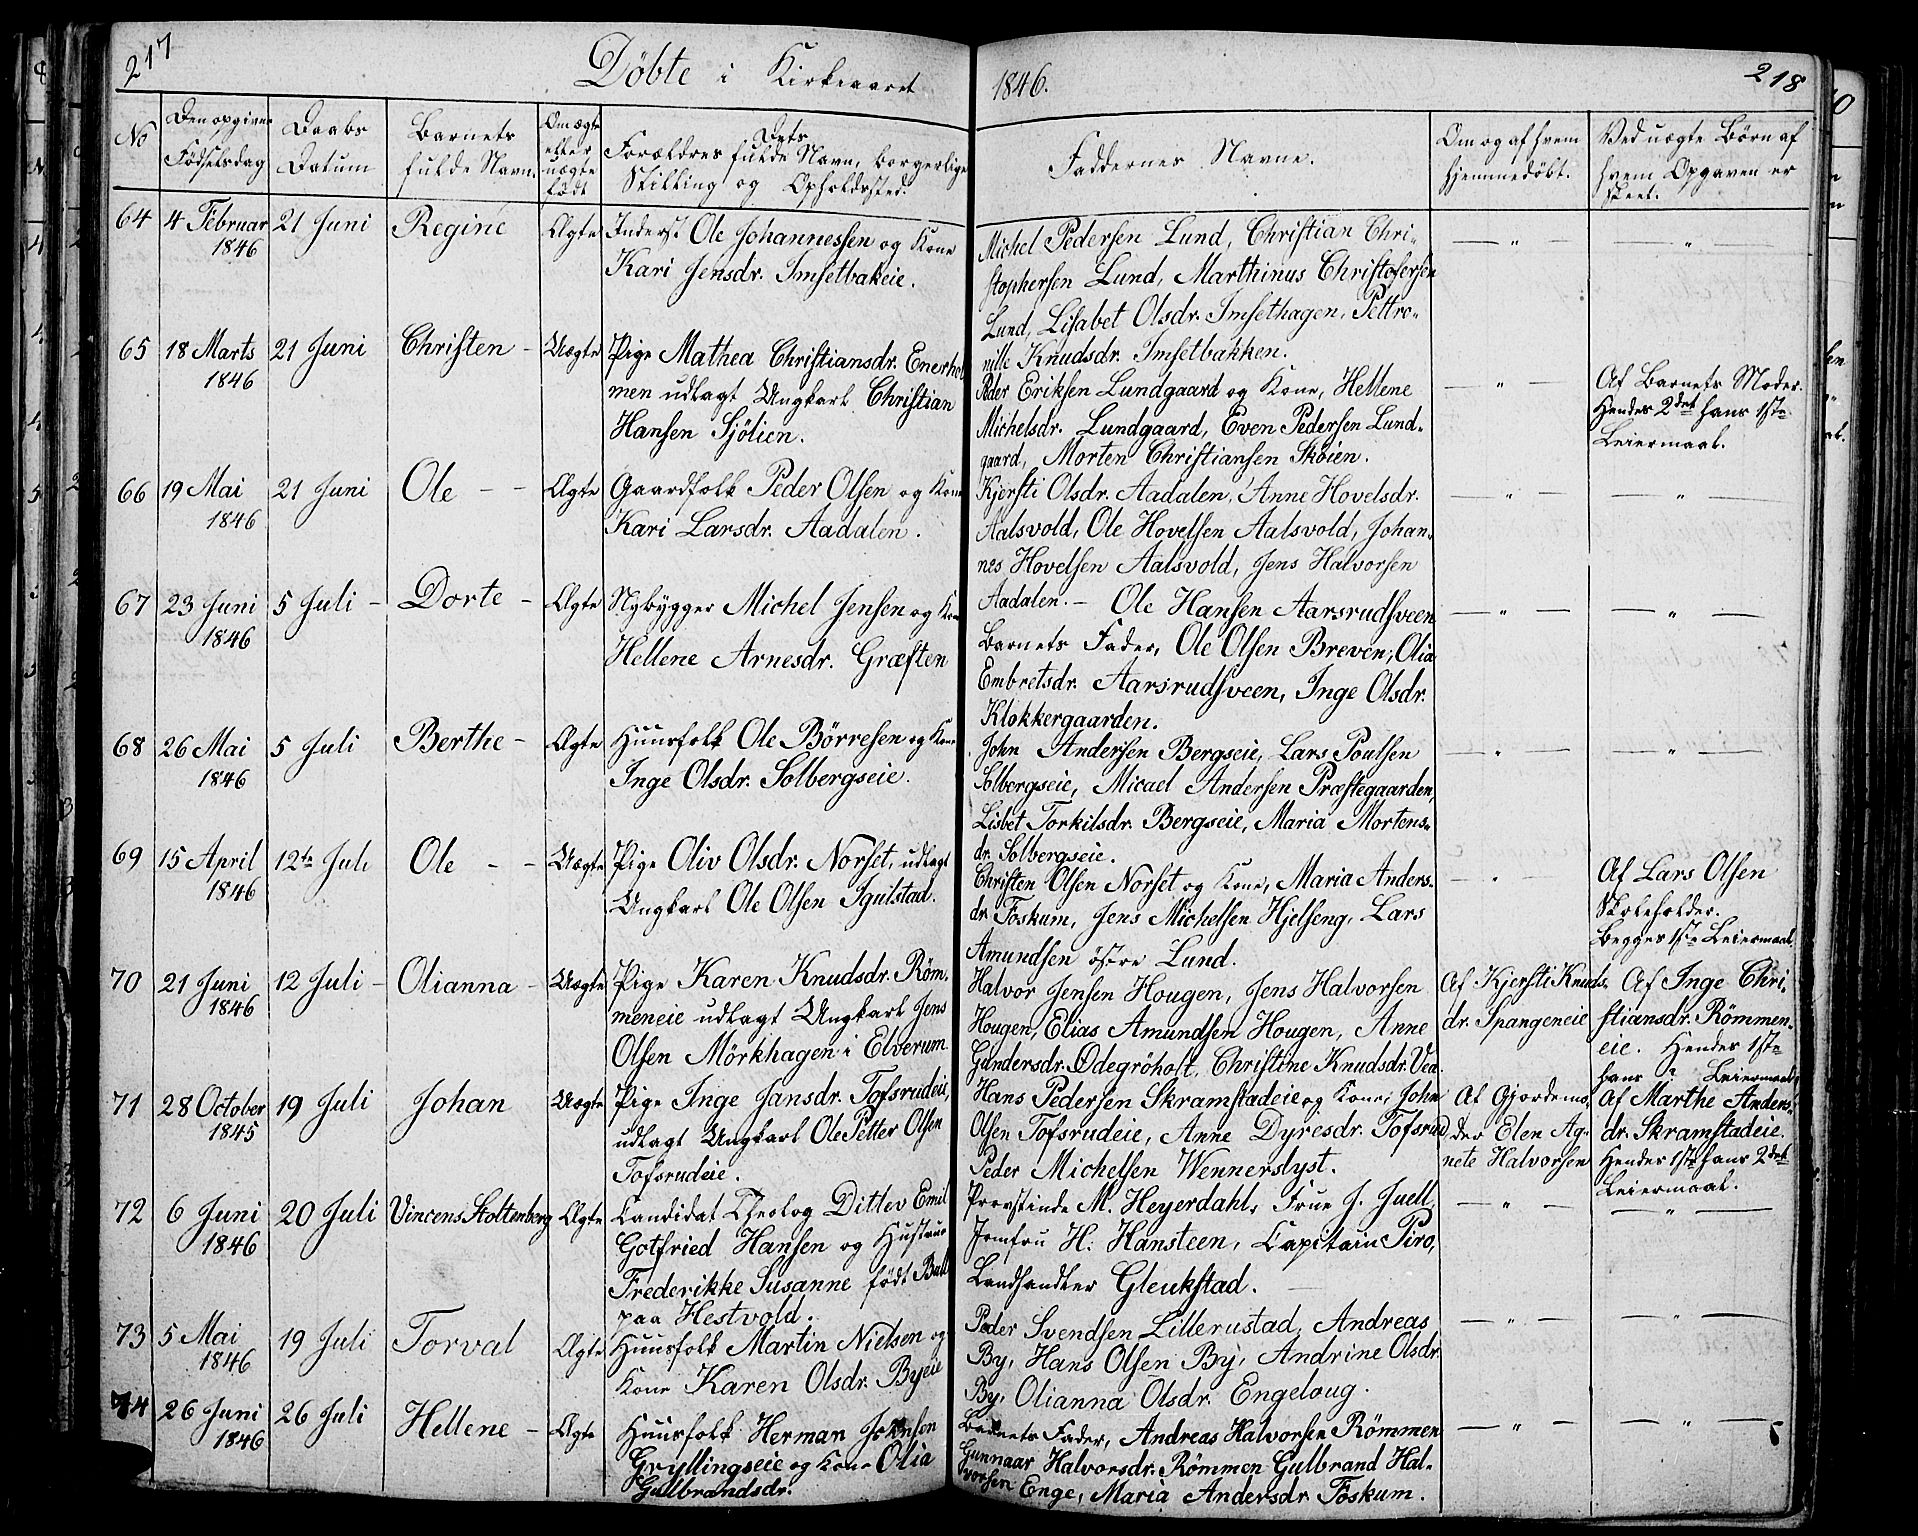 217
Döbte i Kirkeaaret
1846.
218
No
Den opgivne
Födselsdag
Daabs
Datum
Barnets
fulde Navn.
Om ægte
eller
uægte
födt
Dets
Forældres fulde Navn, borgerlige
Stilling og Opholdssted.
Faddernes Navne.
Om og af hvem
hjemmedöbt.
Ved uægte Börn af
hvem Opgaven er
skeet.
64 4 Februar 21 Juni Regine Ægte Inderst Ole Johannessen og Kone
1846
Kari Jensdr. Imsetbakeie.
Michel Pedersen Lund, Christian Chri-
stophersen Lund, Marthinus Christofersen
Lund, Lisabet Olsdr. Imsethagen, Pettro-
nille Knudsdr. Imsetbakken.
— " —
— " —
65 18 Marts 21 Juni Christen - Uægte Pige Mathea Christiansdr. Enerhol
1846
men udlagt Ungkarl Christian
Hansen Sjölien.
Peder Eriksen Lundgaard og Kone, Hellene
Michelsdr. Lundgaard, Even Pedersen Lund-
gaard, Morten Christiansen Sköien.
— " —
Af Barnets Moder.
Hendes 2det hans 1ste
Leiermaal.
66 19 Mai 21 Juni Ole - - Ægte Gaardfolk Peder Olsen og Kone
1846
Kari Larsdr. Aadalen.
Kjersti Olsdr. Aadalen, Anne Hovelsdr.
Aalsvold, Ole Hovelsen Aalsvold, Johan-
nes Hovelsen Aalsvold, Jens Halvorsen
Aadalen. —
— " —
— " —
67 23 Juni 5 Juli - Dorte - Ægte Nybygger Michel Jensen og Kone
1846
Hellene Arnesdr. Græften
Ole Hansen Aarsrudsveen
Barnets Fader, Ole Olsen Breven, Olia
Embretsdr. Aarsrudsveen, Inge Olsdr.
Klokkergaarden.
— " —
— " —
68 26 Mai 5 Juli Berthe - Ægte Huusfolk Ole Börresen og Kone
1846
Inge Olsdr. Solbergseie.
John Andersen Bergseie, Lars Poulsen
Solbergseie, Micael Andersen Præstegaarden,
Lisbet Torkilsdr. Bergseie, Maria Mortens-
dr. Solbergseie.
— " —
— " —
69 15 April 12te Juli Ole - - Uægte Pige Oliv Olsdr. Norset, udlagt
1846
Ungkarl Ole Olsen Igulstad.
Christen Olsen Norset og Kone, Maria Anders-
dr. Foskum, Jens Michelsen Hjelseng, Lars
Amundsen östre Lund.
— " —
Af Lars Olsen
Skoleholder.
Begges 1ste Leiermaal.
70 21 Juni 12 Juli - Olianna - Uægte Pige Karen Knudsdr. Röm-
1846
meneie udlagt Ungkarl Jens
Olsen Mörkhagen i Elverum
Halvor Jensen Hougen, Jens Halvorsen
Hougen, Elias Amundsen Hougen, Anne
Gundersdr. Ödegröholt, Christine Knudsdr. Vea.
Af Kjersti Knuds-
dr. Spangeneie
Af Inge Chri-
stiansdr. Römmen-
eie. Hendes 1ste
hans ? Leiermaal.
71 28 October 19 Juli Johan Uægte Pige Inge Jansdr. Tofsrudeie,
1845
udlagt Ungkarl Ole Petter Olsen
Tofsrudeie.
Hans Pedersen Skramstadeie og Kone, John
Olsen Tofsrudeie, Anne Dyresdr. Tofsrud
Peder Michelsen Wennerslyst.
Af Gjordemo-
der Elen Ag-
nete Halvorsen
Af Marthe Anders-
dr. Skramstadeie.
Hendes 1ste hans 2det
Leiermaal.
72 6 Juni 20 Juli Vincens Stoltenberg Ægte Candidat Theolog Ditlev Emil
1846
Gotfried Hansen og Hustrue
Frederikke Susanne födt Bull
paa Hestvold.
Provstinde M. Heyerdahl, Frue J. Juell,
Jomfru H. Hansteen, Capitain Piro,
Landhandler Gleukstad.
— " —
— " —
73 5 Mai 19 Juli Torval Ægte Huusfolk Martin Nielsen og
1846
Kone Karen Olsdr. Byeie
Peder Svendsen Lillerustad, Andreas
By, Hans Olsen By, Andrine Olsdr.
By, Olianna Olsdr. Engeloug.
— " —
— " —
74 26 Juni 26 Juli Hellene - Ægte Huusfolk Herman Johnsen
1846
Gryllingseie og Kone Olia
Gulbrandsdr.
Barnets Fader, Andreas Halvorsen Römmen
Gunnaar Halvorsdr. Römmen Gulbrand Hal-
vorsen Enge, Maria Andersdr. Foskum.
— " —
— " —